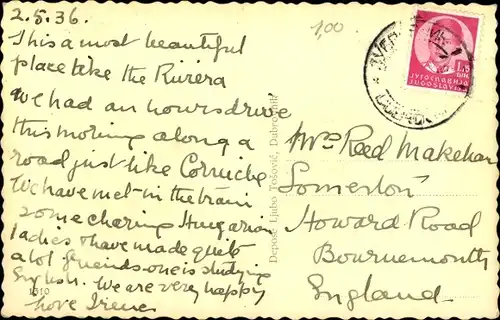 2.5.36.
This a most beautiful
place like the Riviera
we had an hours drive
this morning along a
road just like Corniche
We have met in the train
some charing Hungarian
ladies & have made quite
a lot friends one is studying
English. We are very happy
love Irene
1510
Deposé Ljubo Tošović, Dubrovnik
1,00
ЈУГОСЛАВИЈА
JUGOSLAVIJA
Mrs Reed Makeham
Somerton
Howard Road
Bournemouth
England